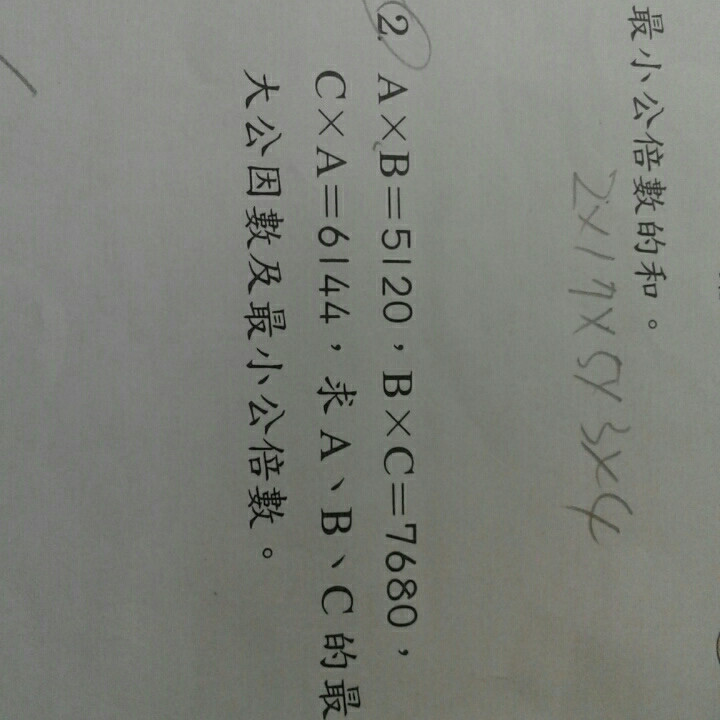 最小公倍數的和。
2×17×5×3×4
2. A×B=5120,B×C=7680,
C×A=6144,求A、B、C的最
大公因數及最小公倍數。